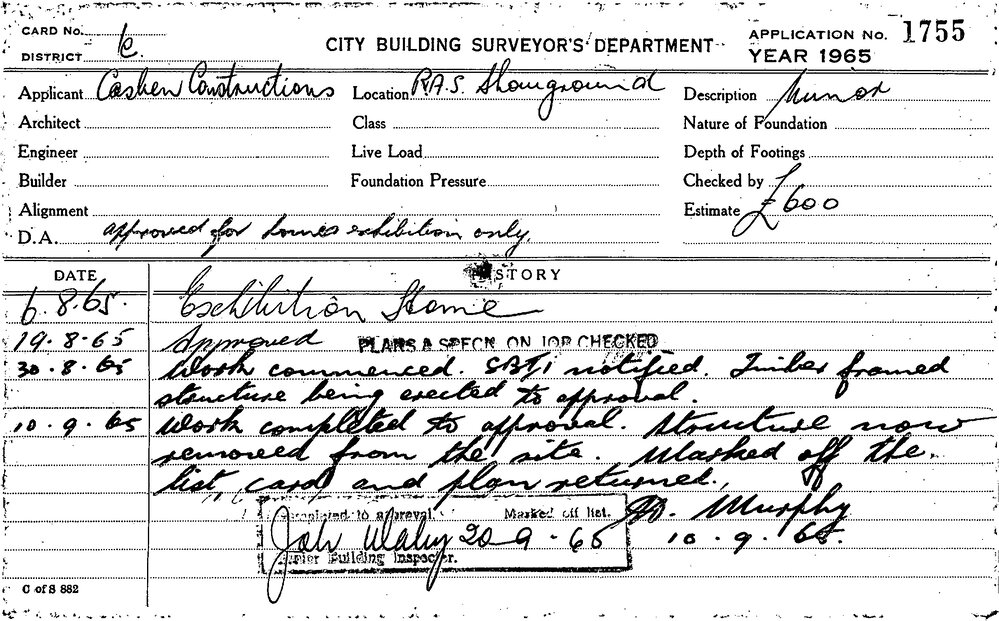 CARD No.
DISTRICT
CITY BUILDING SURVEYOR'S DEPARTMENT
APPLICATION No. 1755
YEAR 1965
Applicant Cashen Constructions Location R.A.S. Showground Description Minor
Architect Class Nature of Foundation
Engineer Live Load Depth of Footings
Builder Foundation Pressure Checked by
Alignment Estimate £600
D.A. approved for homes exhibition only.
DATE HISTORY
6.8.65. Exhibition Home
19.8.65 Approved PLANS & SPECN. ON JOB CHECKED
30.8.65 Work commenced. SBI notified. Timber framed
structure being erected to approval.
10.9.65 Work completed to approval. Structure now
removed from the site. Marked off the
list, card and plan returned.
Completed to approval. Marked off list. Murphy
20-9-65 10.9.65.
Senior Building Inspector.
C of S 882